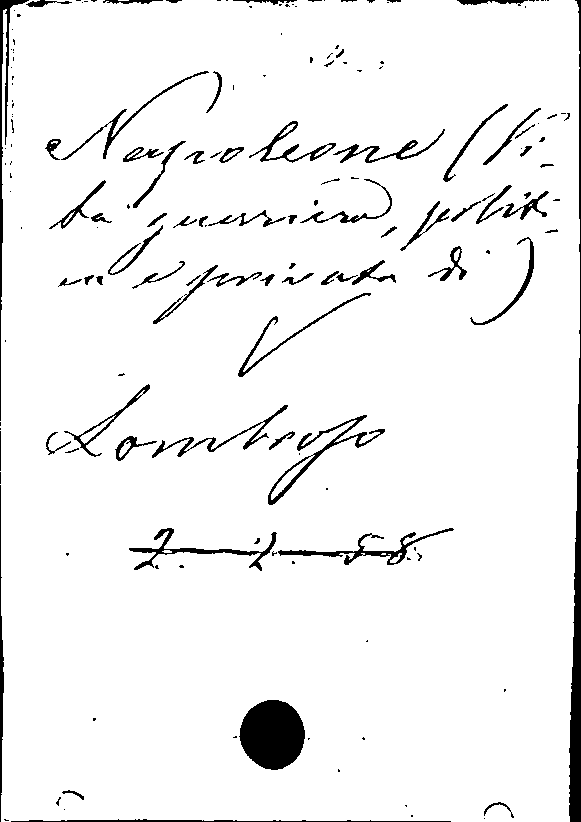 Napoleone (Vi-
ta guerriera, politi-
ca e privata di)
V
Lombroso
2. 2. 58.